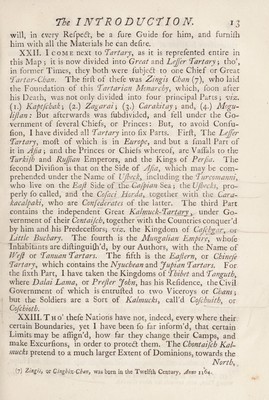 The INTRODUCTION. 13
will, in every Respect, be a sure Guide for him, and furnish
him with all the Materials he can desire.
XXII. I COME next to Tartary, as it is represented entire in
this Map; it is now divided into Great and Lesser Tartary; tho',
in former Times, they both were subject to one Chief or Great
Tartar-Chan. The first of these was Zingis Chan (7), who laid
the Foundation of this Tartarian Monarchy, which, soon after
his Death, was not only divided into four principal Parts; viz.
(1.) Kaptschak; (2.) Zagarai; (3.) Carakitay; and, (4.) Mogu-
listan: But afterwards was subdivided, and still under the Go-
vernment of several Chiefs, or Princes: But, to avoid Confu-
sion, I have divided all Tartary into six Parts. First, The Lesser
Tartary, most of which is in Europe, and but a small Part of
it in Asia; and the Princes or Chiefs whereof, are Vassals to the
Turkish and Russian Emperors, and the Kings of Persia. The
second Division is that on the Side of Asia, which may be com-
prehended under the Name of Usbeck, including the Turcomanni,
who live on the East Side of the Caspian Sea; the Usbecks, pro-
perly so called, and the Cosaci Horda, together with the Cara-
kacalpaki, who are Confederates of the latter. The third Part
contains the independent Great Kalmuck-Tartary, under Go-
vernment of their Contaisch, together with the Countries conquer'd
by him and his Predecessors; viz. the Kingdom of Caschgar, or
Little Buchary. The fourth is the Mungalian Empire, whose
Inhabitants are distinguish'd, by our Authors, with the Name of
West or Tannan Tartars. The fifth is the Eastern, or Chinese
Tartary, which contains the Nyuchean and Jupian Tartars. For
the sixth Part, I have taken the Kingdoms of Thibet and Tanguth,
where Dalai Lama, or Prester John, has his Residence, the Civil
Government of which is entrusted to two Viceroys or Chans;
but the Soldiers are a Sort of Kalmucks, call'd Coschuith, or
Coschioth.
XXIII. THO' these Nations have not, indeed, every where their
certain Boundaries, yet I have been so far inform'd, that certain
Limits may be assign'd, how far they change their Camps, and
make Excursions, in order to protect them. The Chontaisch Kal-
mucks pretend to a much larger Extent of Dominions, towards the
North,
(7) Zingis, or Cinghis-Chan, was born in the Twelfth Century, Anno 1164.